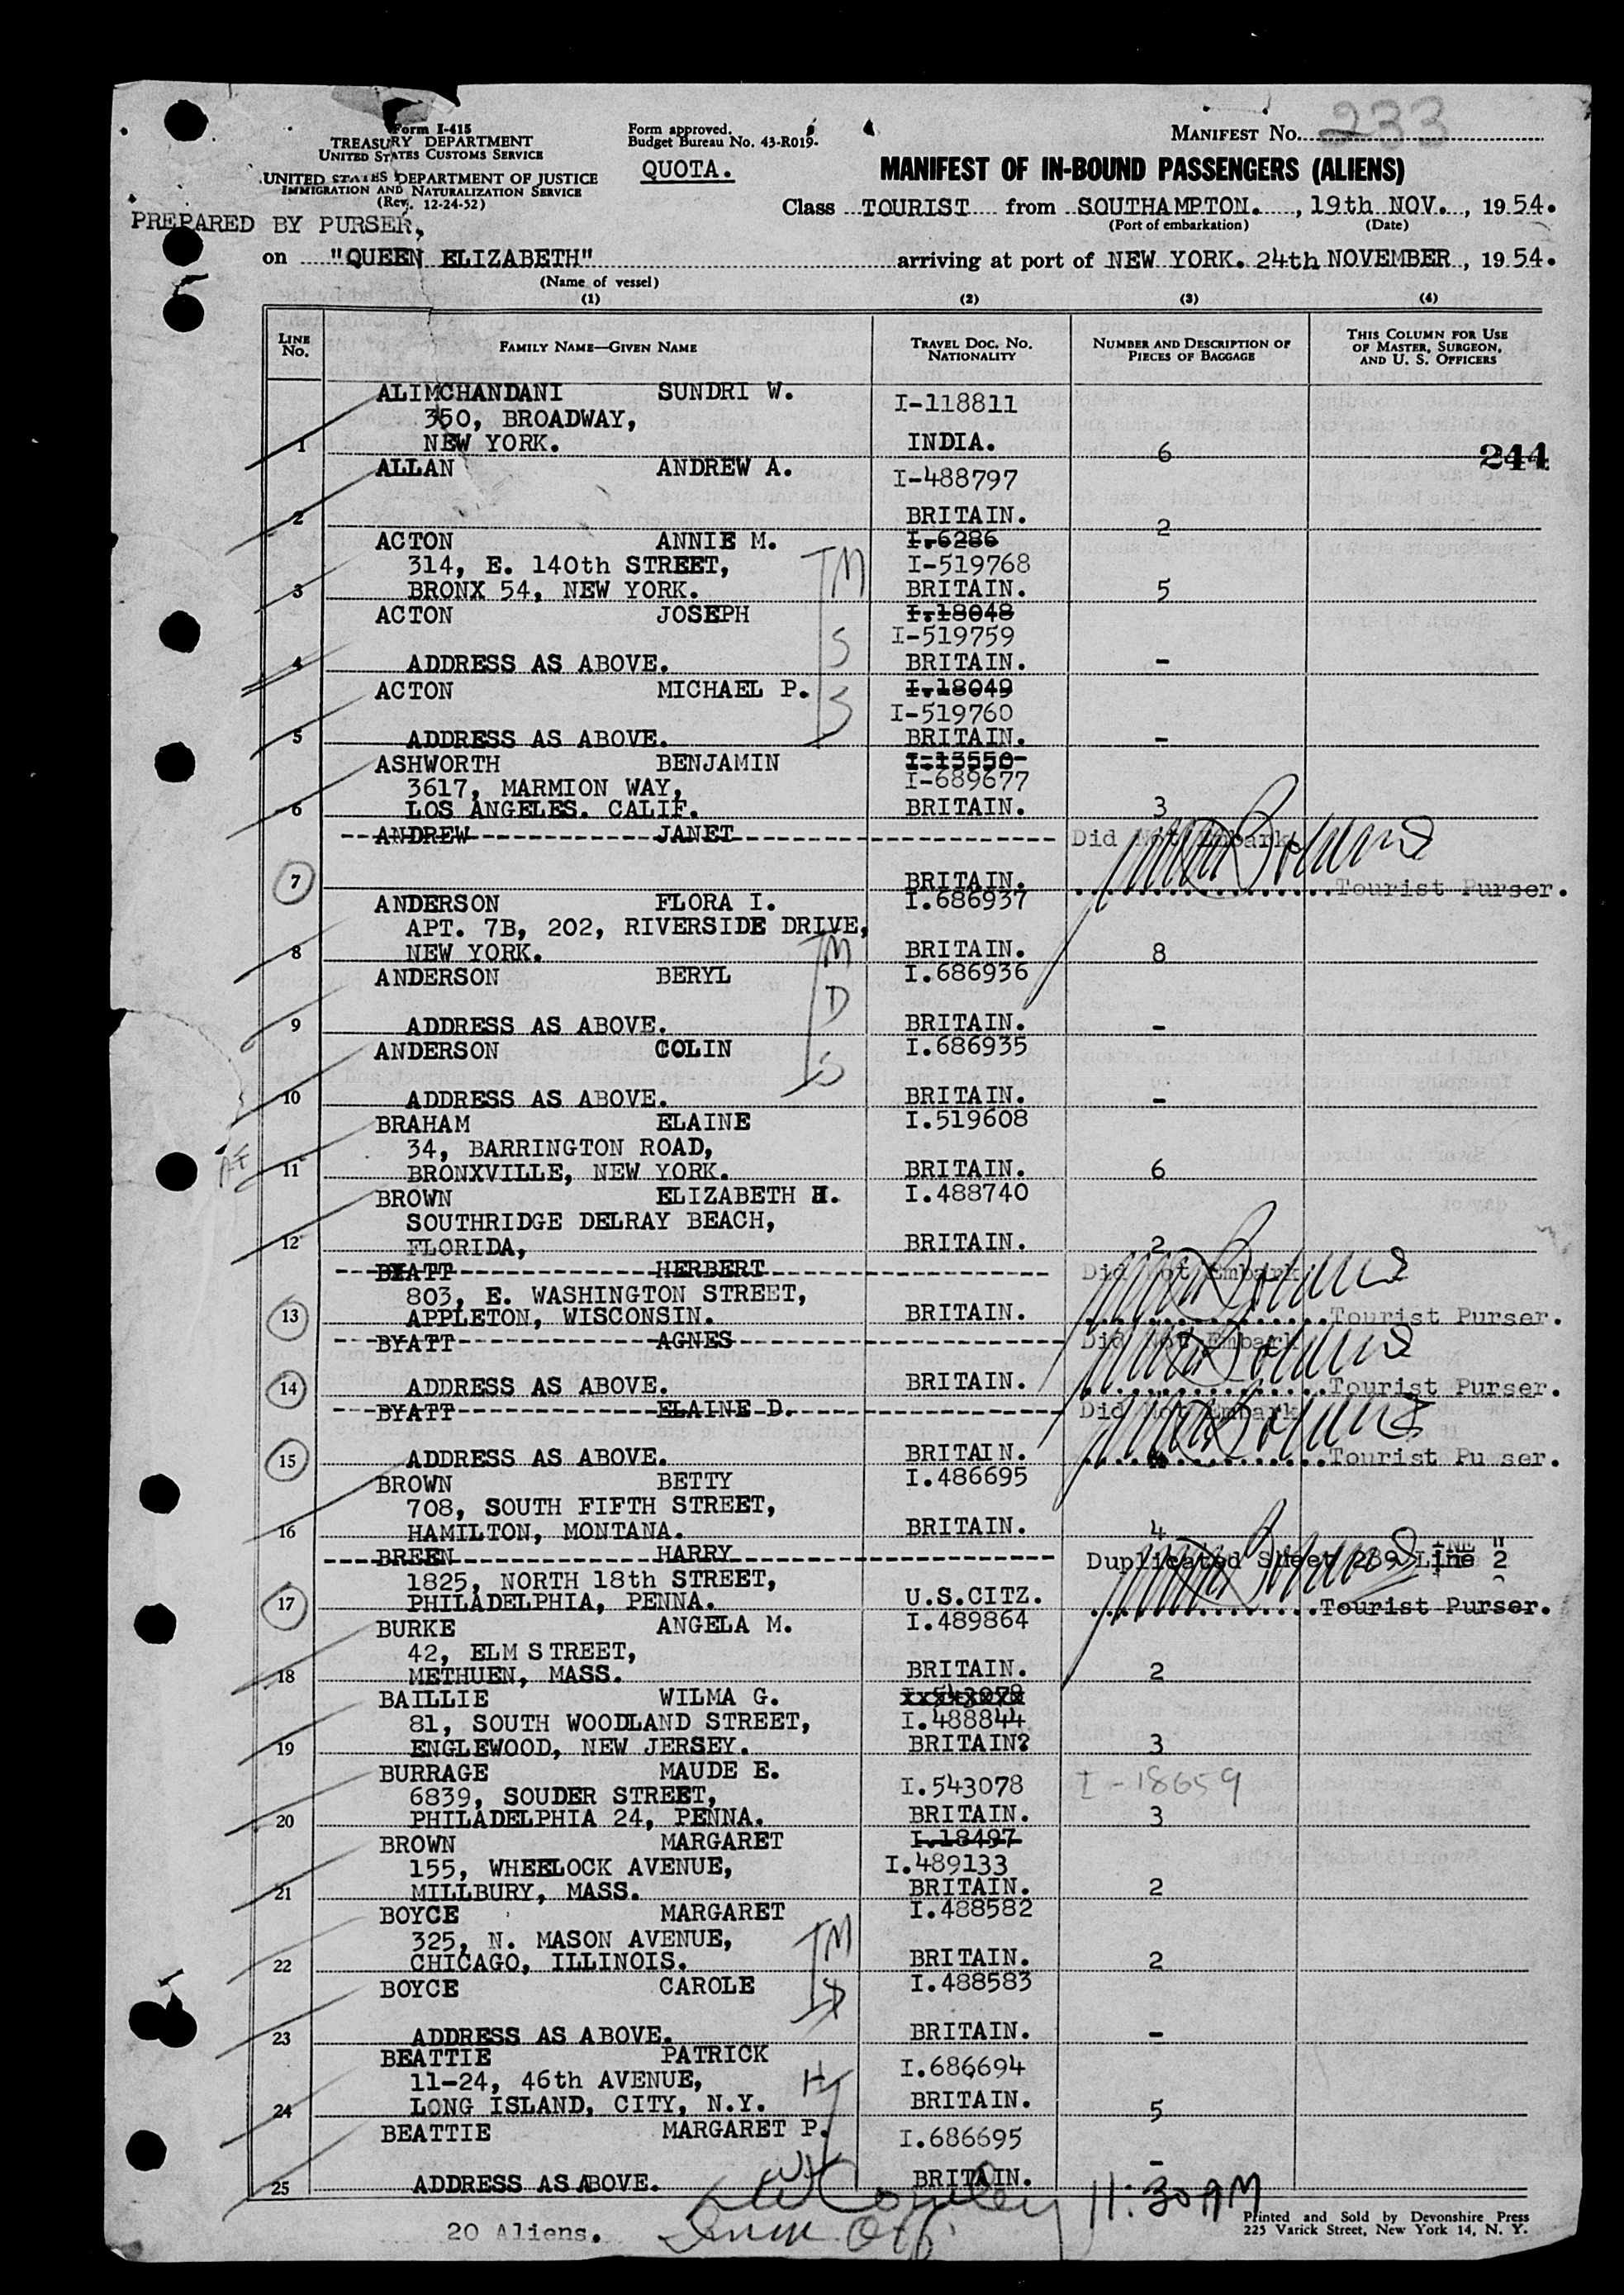 Form I-415
TREASURY DEPARTMENT
UNITED STATES CUSTOMS SERVICE
UNITED STATES DEPARTMENT OF JUSTICE
IMMIGRATION AND NATURALIZATION SERVICE
(Rev. 12-24-52)
PREPARED BY PURSER,
Form approved.
Budget Bureau No. 43-R019.
QUOTA.
MANIFEST No. 233
MANIFEST OF IN-BOUND PASSENGERS (ALIENS)
Class TOURIST from SOUTHAMPTON. , 19th NOV. , 1954.
(Port of embarkation) (Date)
on "QUEEN ELIZABETH" arriving at port of NEW YORK. 24th NOVEMBER , 1954.
(Name of vessel)
(1) (2) (3) (4)
LINE No. FAMILY NAME—GIVEN NAME TRAVEL DOC. No. NATIONALITY NUMBER AND DESCRIPTION OF PIECES OF BAGGAGE THIS COLUMN FOR USE OF MASTER, SURGEON, AND U. S. OFFICERS
ALIMCHANDANI SUNDRI W. I-118811
350, BROADWAY,
1 NEW YORK. INDIA. 6 244
ALLAN ANDREW A. I-488797
2 BRITAIN. 2
ACTON ANNIE M. I.6286
314, E. 140th STREET, I-519768
3 BRONX 54, NEW YORK. BRITAIN. 5
M
ACTON JOSEPH I.18048
I-519759
4 ADDRESS AS ABOVE. BRITAIN. -
S
ACTON MICHAEL P. I.18049
I-519760
5 ADDRESS AS ABOVE. BRITAIN. -
S
ASHWORTH BENJAMIN I.13550
3617, MARMION WAY, I-689677
6 LOS ANGELES. CALIF. BRITAIN. 3
ANDREW JANET Did Not Embark
7 BRITAIN. Tourist Purser.
ANDERSON FLORA I. I.686937
APT. 7B, 202, RIVERSIDE DRIVE,
8 NEW YORK. BRITAIN. 8
M
ANDERSON BERYL I.686936
D
9 ADDRESS AS ABOVE. BRITAIN. -
ANDERSON COLIN I.686935
S
10 ADDRESS AS ABOVE. BRITAIN. -
BRAHAM ELAINE I.519608
34, BARRINGTON ROAD,
11 BRONXVILLE, NEW YORK. BRITAIN. 6
BROWN ELIZABETH H. I.488740
SOUTHRIDGE DELRAY BEACH,
12 FLORIDA, BRITAIN. 2
BYATT HERBERT Did Not Embark
803, E. WASHINGTON STREET,
13 APPLETON, WISCONSIN. BRITAIN. Tourist Purser.
BYATT AGNES Did Not Embark
14 ADDRESS AS ABOVE. BRITAIN. Tourist Purser.
BYATT ELAINE D. Did Not Embark
15 ADDRESS AS ABOVE. BRITAIN. Tourist Pu ser.
BROWN BETTY I.486695
708, SOUTH FIFTH STREET,
16 HAMILTON, MONTANA. BRITAIN. 4
BREEN HARRY Duplicated Sheet 239 Line 2
1825, NORTH 18th STREET,
17 PHILADELPHIA, PENNA. U.S.CITZ. Tourist Purser.
BURKE ANGELA M. I.489864
42, ELM STREET,
18 METHUEN, MASS. BRITAIN. 2
BAILLIE WILMA G. I.543078
81, SOUTH WOODLAND STREET, I.488844
19 ENGLEWOOD, NEW JERSEY. BRITAIN? 3
BURRAGE MAUDE E.
6839, SOUDER STREET, I.543078 I-18659
20 PHILADELPHIA 24, PENNA. BRITAIN. 3
BROWN MARGARET I.18497
155, WHEELOCK AVENUE, I.489133
21 MILLBURY, MASS. BRITAIN. 2
BOYCE MARGARET I.488582
325, N. MASON AVENUE,
22 CHICAGO, ILLINOIS. BRITAIN. 2
M
BOYCE CAROLE I.488583
D
23 ADDRESS AS ABOVE. BRITAIN. -
BEATTIE PATRICK I.686694
11-24, 46th AVENUE,
24 LONG ISLAND, CITY, N.Y. BRITAIN. 5
H
BEATTIE MARGARET P. I.686695
W
25 ADDRESS AS ABOVE. BRITAIN. -
11:30 AM
20 Aliens.
Printed and Sold by Devonshire Press
225 Varick Street, New York 14, N. Y.